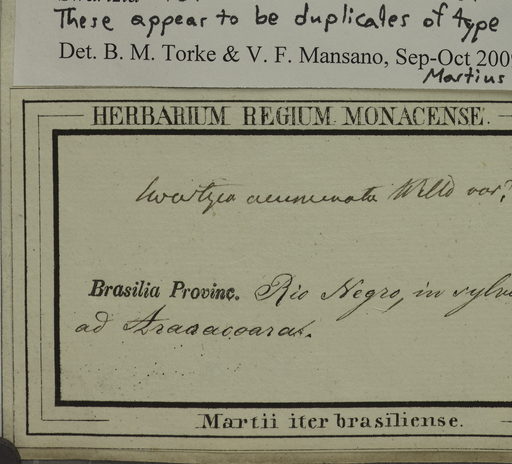 These appear to be duplicates of type
Det. B. M. Torke & V. F. Mansano, Sep-Oct 2009
Martius
HERBARIUM REGIUM MONACENSE.
Swartzia acuminata Willd var?
Brasilia Provinc. Rio Negro, in sylv
ad Araracoara.
Martii iter brasiliense.